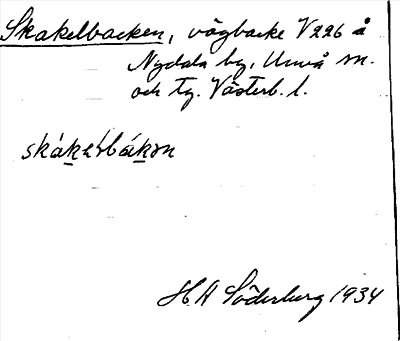 Skakelbacken, vägbacke V226 å
Nydala by, Umeå sn.
och tg. Västerb. l.
skákelbákən
H. A Söderburg 1934